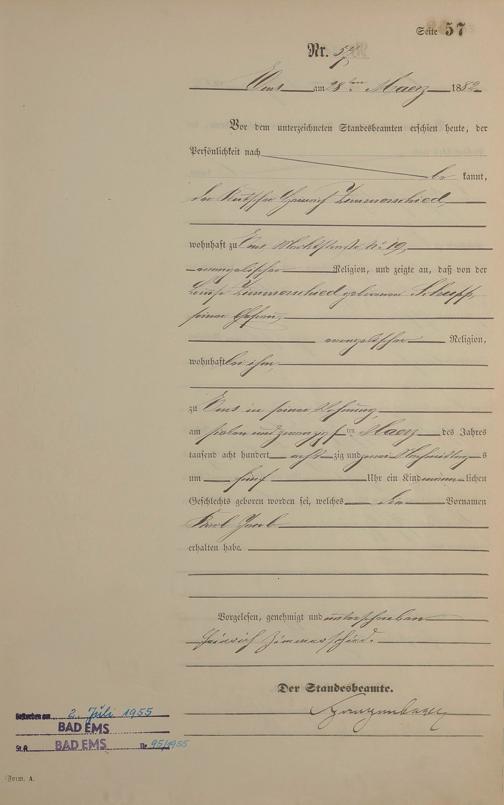 Seite 57
Nr. 57
Ems am 28ten Maerz 1882
Vor dem unterzeichneten Standesbeamten erschien heute, der
Persönlichkeit nach
be kannt,
der Kutscher Heinrich Zimmerschied,
wohnhaft zu Ems No 19,
evangelischer Religion, und zeigte an, daß von der
Zimmerschied geborenen
seiner Ehefrau,
evangelischer Religion,
wohnhaft bei ihm,
zu Ems in seiner Wohnung,
am und zwanzigsten Maerz des Jahres
tausend acht hundert acht zig und zwei Nachmittags
um fünf Uhr ein Kind männ lichen
Geschlechts geboren worden sei, welches Vornamen
Karl Jacob
erhalten habe.
Vorgelesen, genehmigt und unterschrieben
Heinrich Zimmerschied.
Der Standesbeamte.
Gestorben am 2. Juli 1955
BAD EMS
St.A. BAD EMS Nr. 95/1955
Form. A.